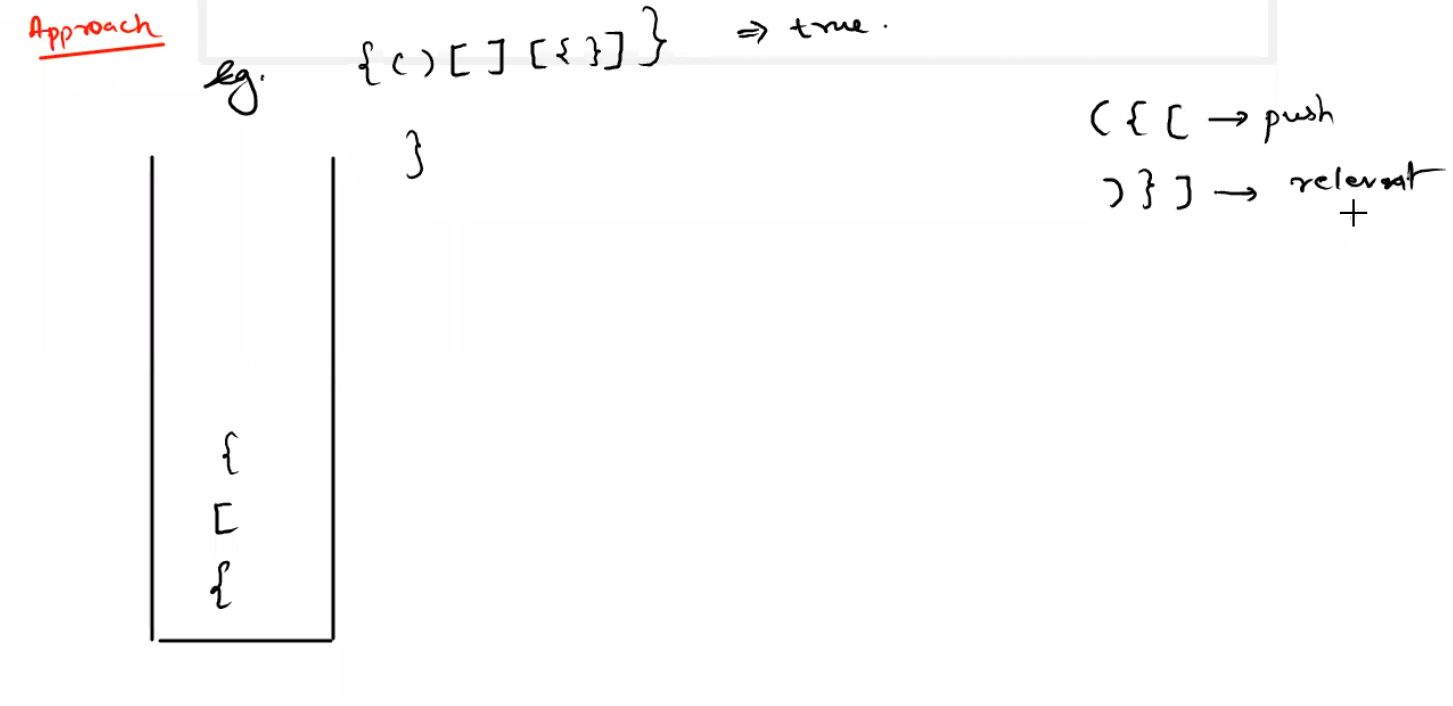 Approach
eg. {()[][{}]} ⇒ true.
}
({[ → push
)}] → relevant
{
[
{